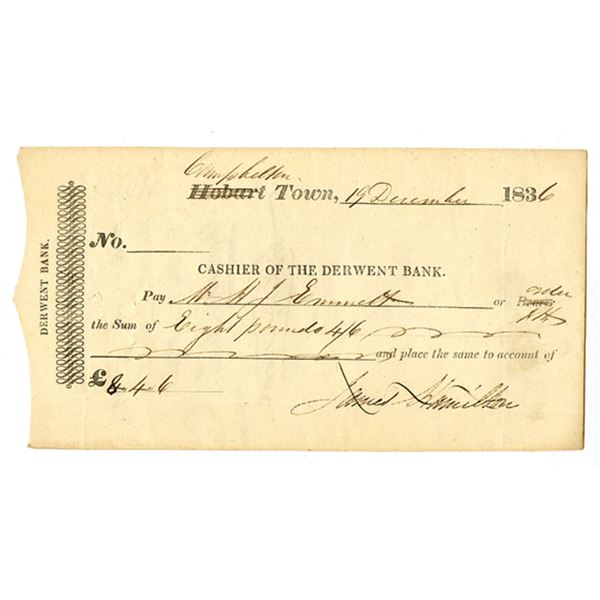 DERWENT BANK.
Campbelton
Hobart Town, 19 December 1836
No.
CASHIER OF THE DERWENT BANK.
Pay Mr H J Emmett or Bearer order
the Sum of Eight pounds 4/6
and place the same to account of
£8.4.6
James Hamilton